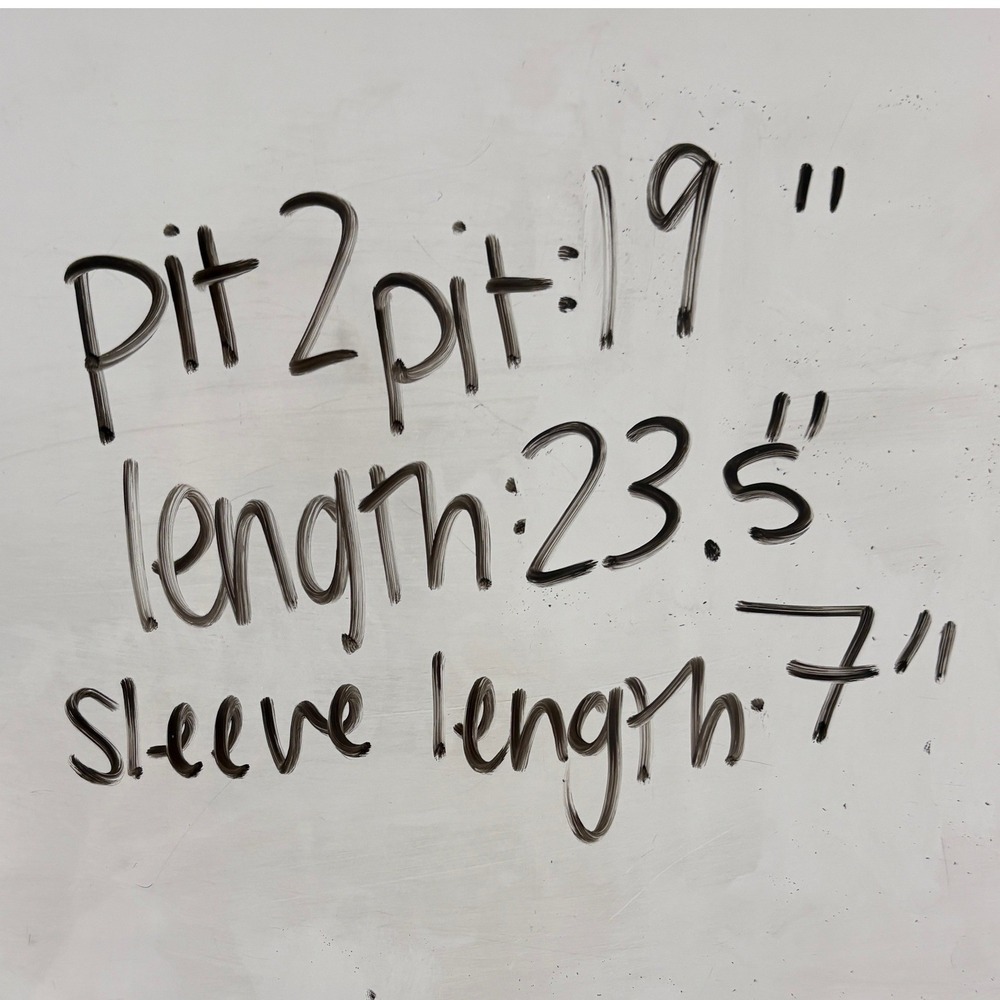 pit 2 pit: 19 "
length: 23.5"
sleeve length: 7"